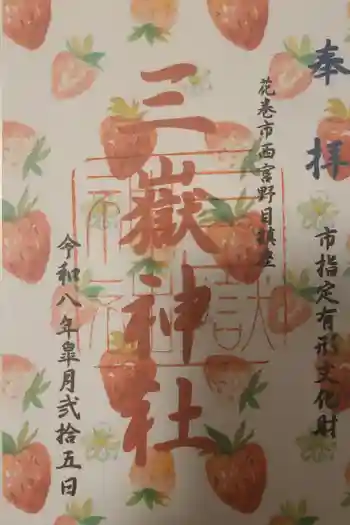 奉拝
市指定有形文化財
花巻市西宮野目鎮座
三嶽神社
令和八年皐月弐拾五日